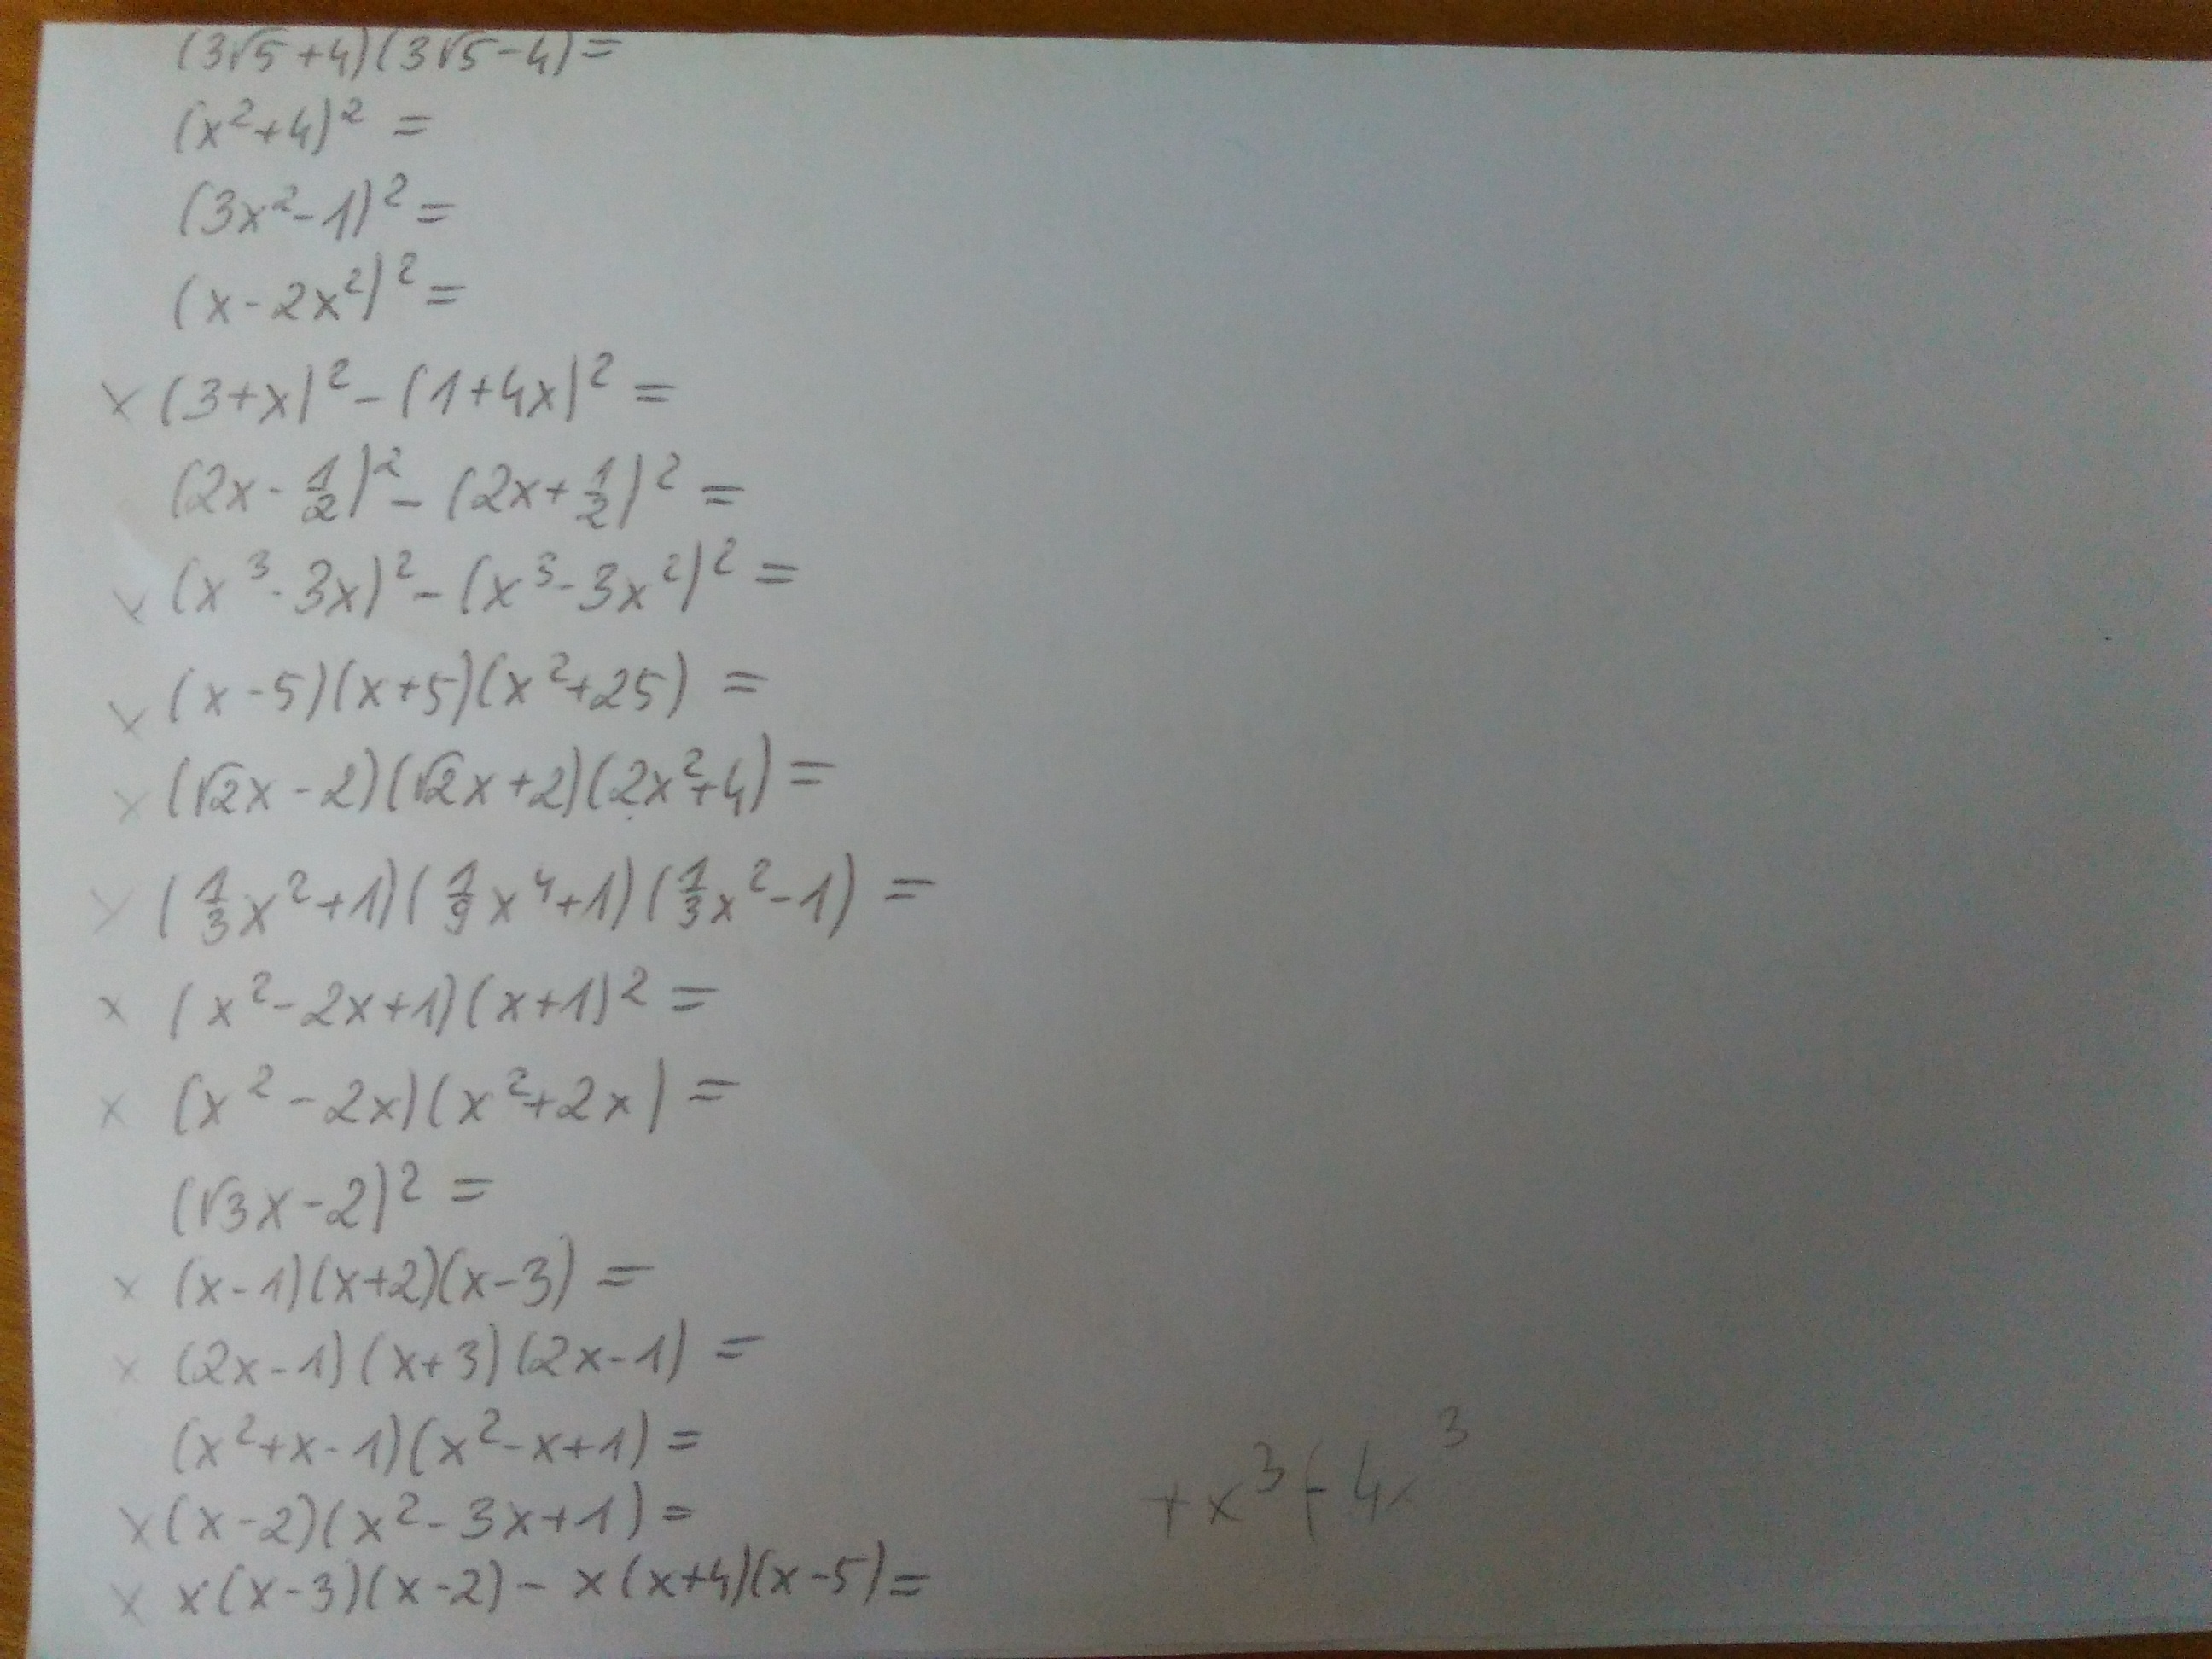 (3√5+4)(3√5-4)=
(x²+4)² =
(3x²-1)² =
(x-2x²)² =
x (3+x)² - (1+4x)² =
(2x - 1/2)² - (2x + 1/2)² =
x (x³-3x)² - (x³-3x²)² =
x (x-5)(x+5)(x²+25) =
x (√2x-2)(√2x+2)(2x²+4) =
x (1/3x²+1)(1/9x⁴+1)(1/3x²-1) =
x (x²-2x+1)(x+1)² =
x (x²-2x)(x²+2x) =
(√3x-2)² =
x (x-1)(x+2)(x-3) =
x (2x-1)(x+3)(2x-1) =
(x²+x-1)(x²-x+1) =
x (x-2)(x²-3x+1) =
x x(x-3)(x-2) - x(x+4)(x-5) =